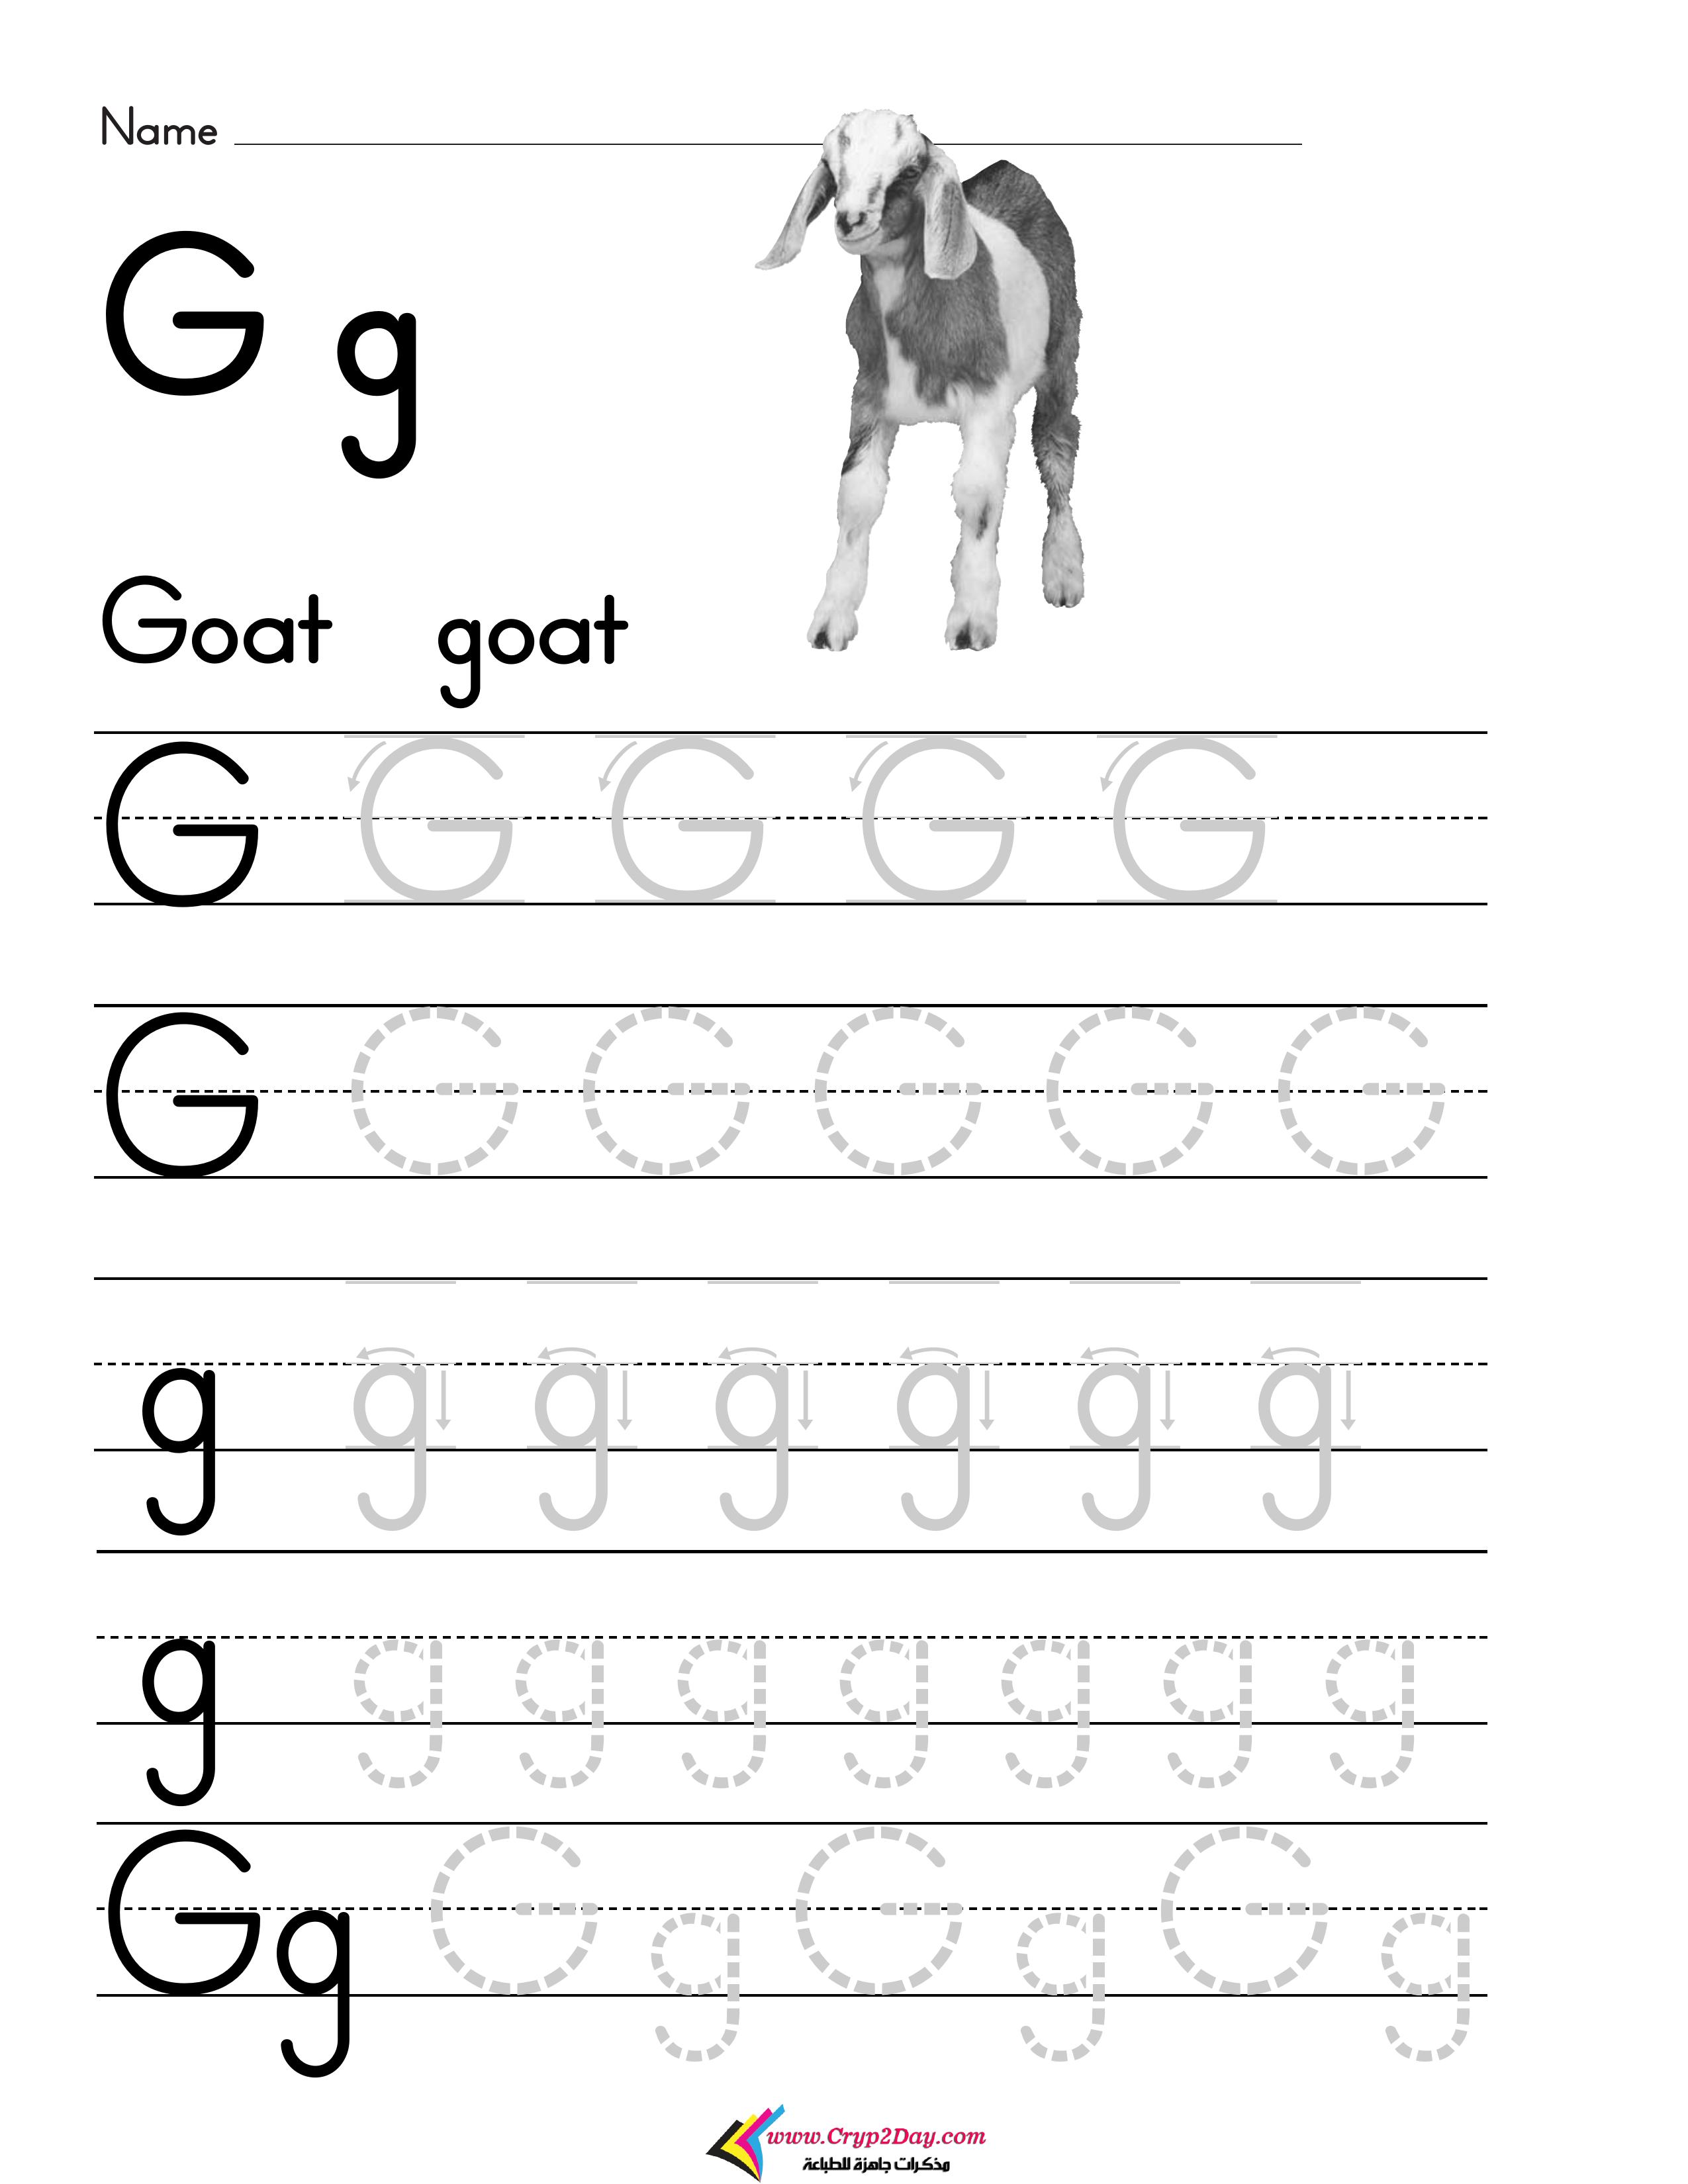 Name
G g
Goat goat
G G G G G
G G G G G G
g g g g g g g
g g g g g g g g
Gg G g G g G g
www.Cryp2Day.com
مذكرات جاهزة للطباعة